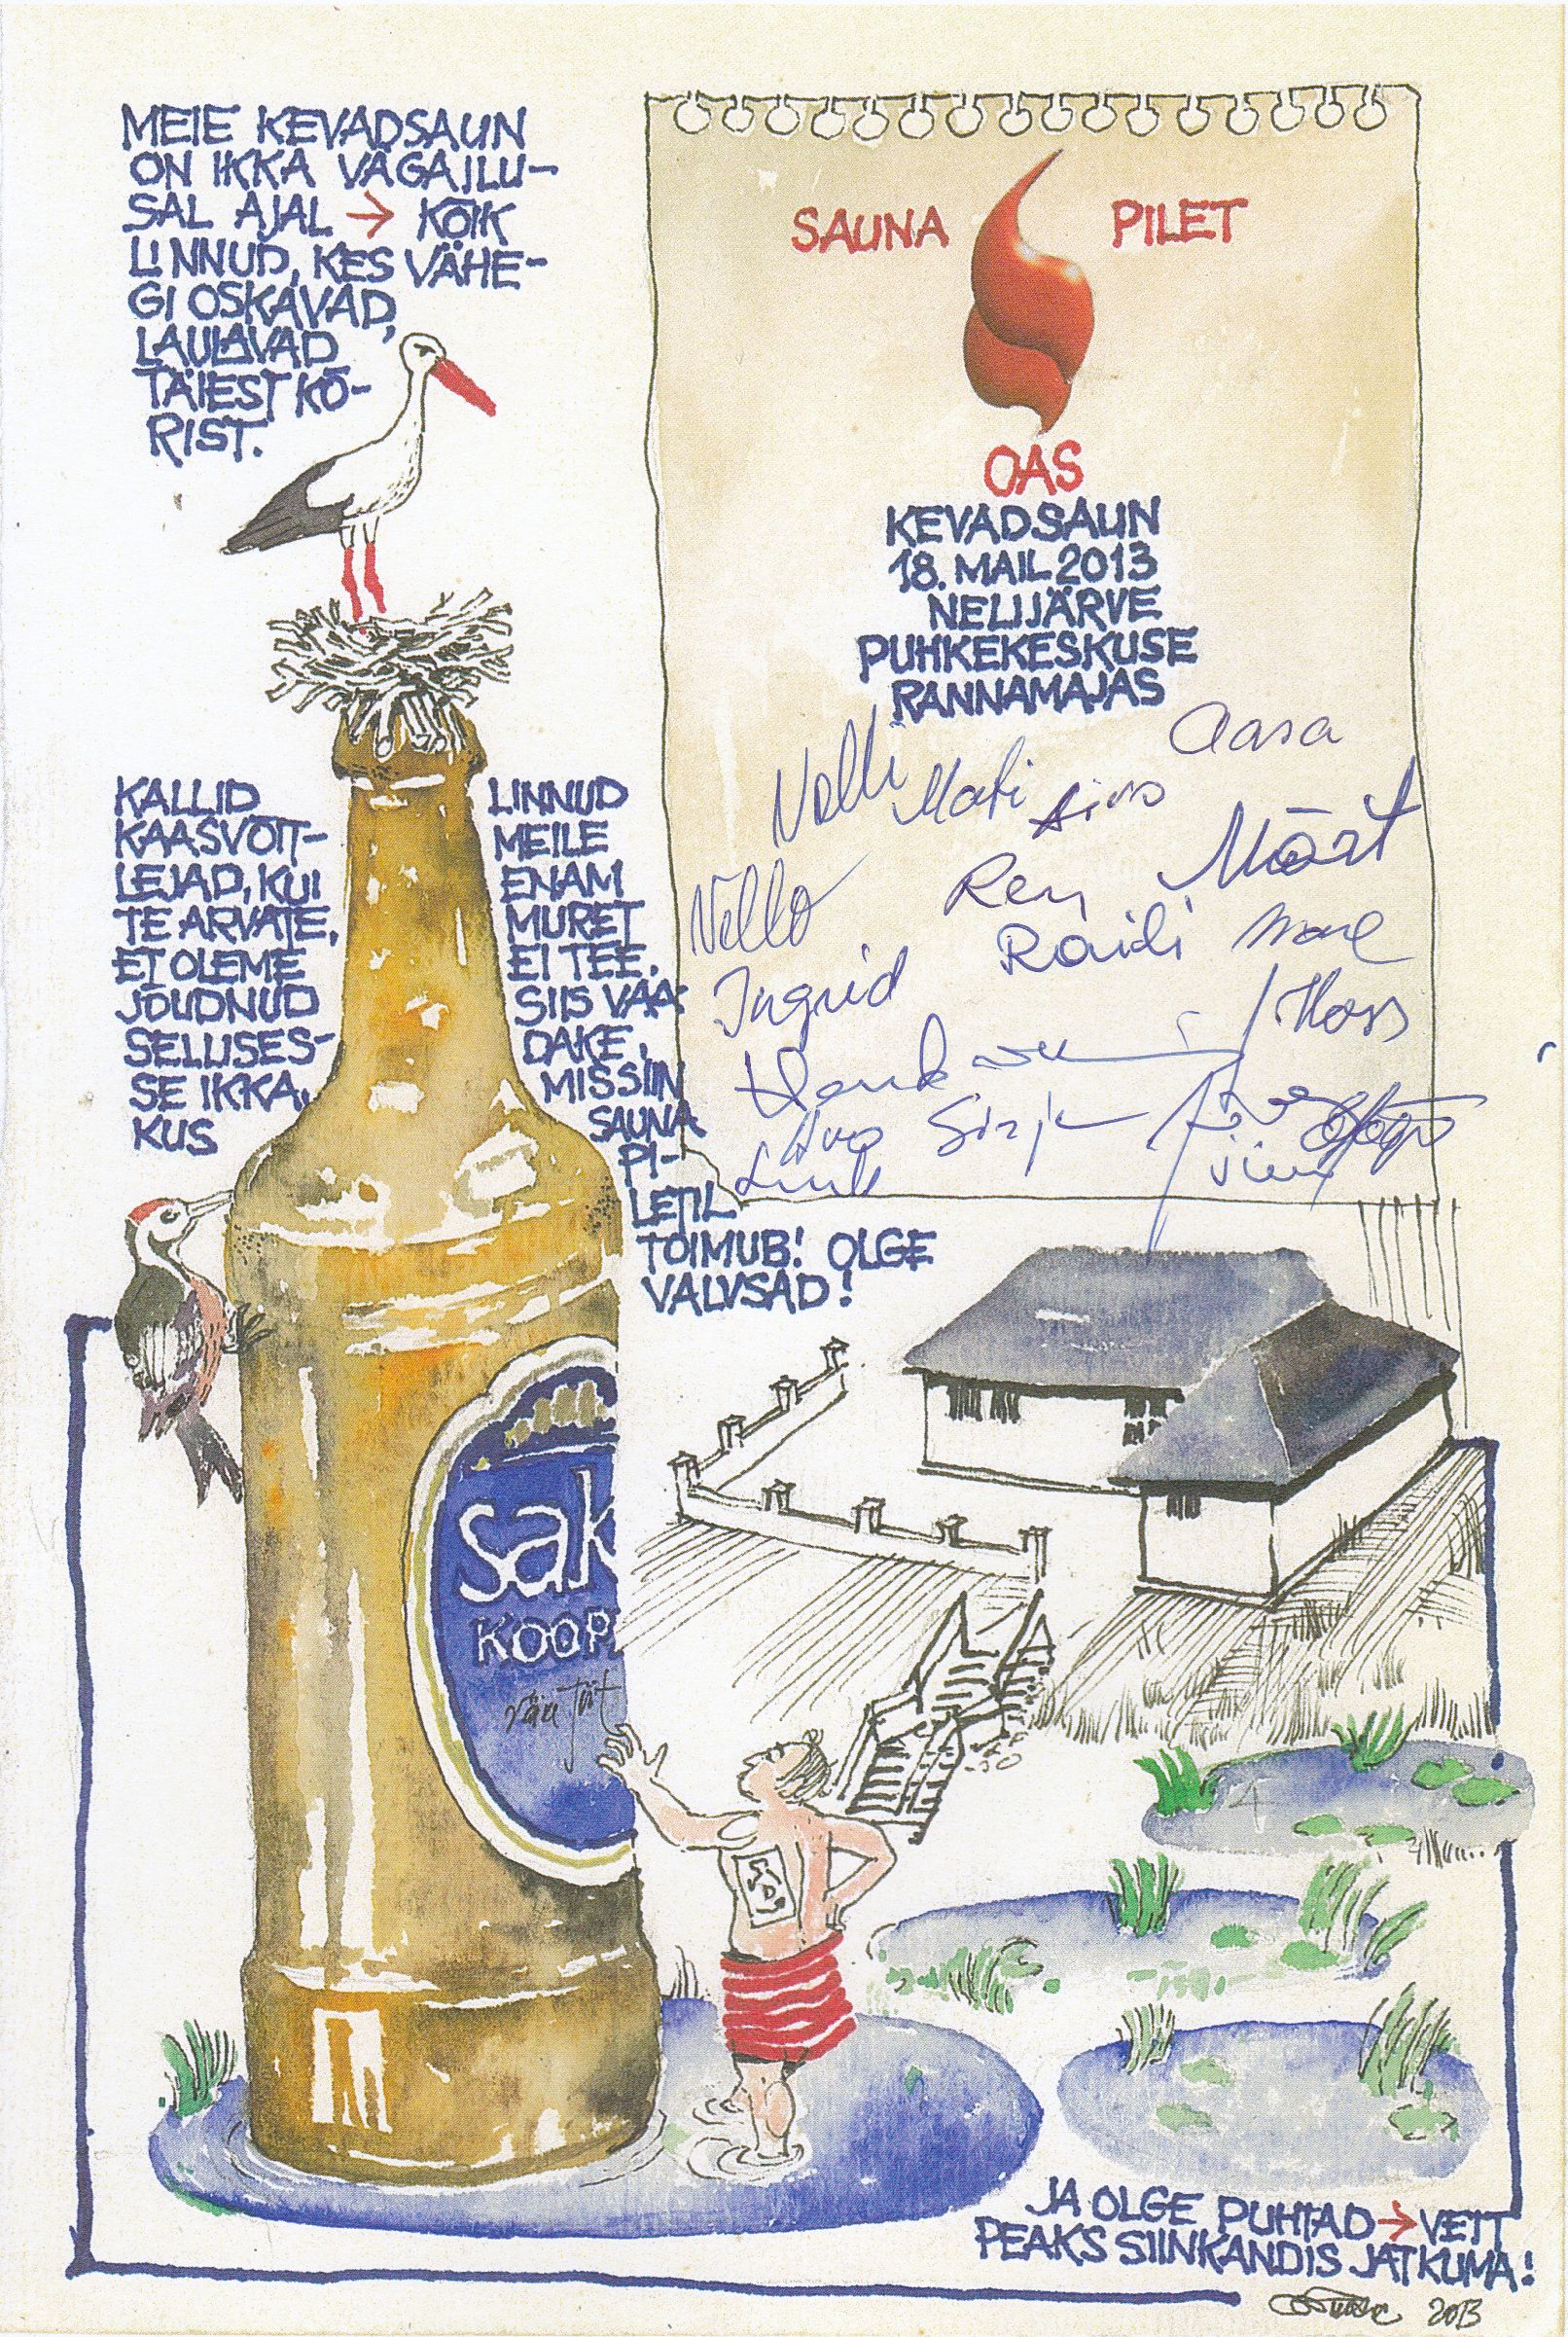 MEIE KEVADSAUN
ON IKKA VÄGA ILU-
SAL AJAL → KÕIK
LINNUD, KES VÄHE-
GI OSKAVAD,
LAULAVAD
TÄIEST KÕ-
RIST.
SAUNA PILET
OAS
KEVADSAUN
18. MAIL 2013
NELIJÄRVE
PUHKEKESKUSE
RANNAMAJAS
Aasa
Nelli Mati
Märt
Vello Rein
Raidi
Ingrid
Sirje
KALLID
KAASVÕIT-
LEJAD, KUI
TE ARVATE,
ET OLEME
JÕUDNUD
SELLISES-
SE IKKA,
KUS
LINNUD
MEILE
ENAM
MURET
EI TEE,
SIIS VAA-
DAKE,
MIS SIIN
SAUNA
PI-
LETIL
TOIMUB! OLGE
VALVSAD!
sak
KOOP
JA OLGE PUHTAD → VETT
PEAKS SIINKANDIS JÄTKUMA!
2013